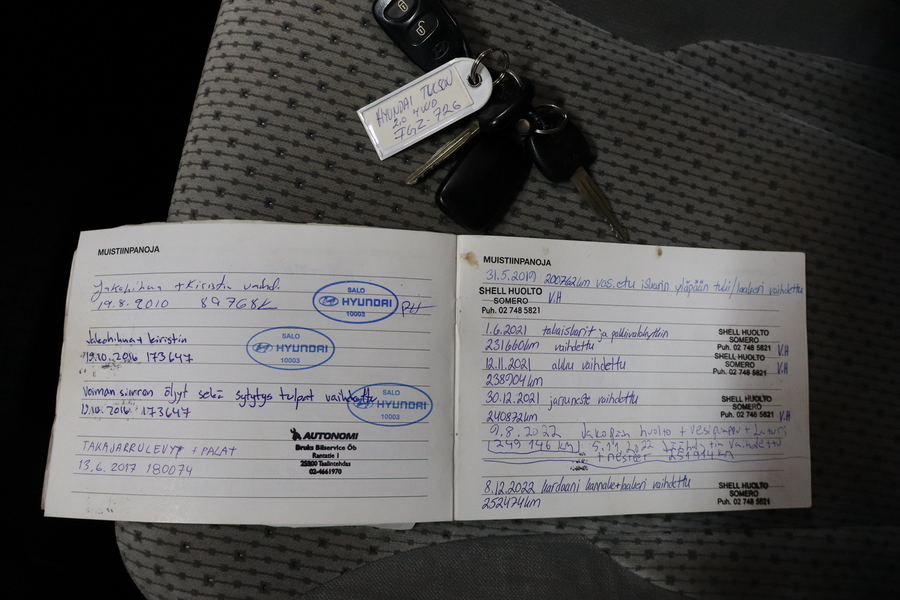 HYUNDAI TUCSON
2.0 4WD
MUISTIINPANOJA
19.8.2010 89768K
SALO
HYUNDAI
10003
Jakohihna + kiristin
19.10.2016 173647
SALO
HYUNDAI
10003
Voiman siirron öljyt sekä sytytys tulpat vaihdettu
173647
SALO
HYUNDAI
10003
TAKAJARRULEVYT + PALAT
13.6.2017 180074
AUTONOMI
Bruks Bilservice Öb
Rantatie 1
25900 Taalintehdas
02-4661970
MUISTIINPANOJA
31.5.2019 200762km vas. etu iskarin yläpään tuki/laakeri vaihdettu
SHELL HUOLTO
SOMERO V.H
Puh. 02 748 5821
1.6.2021 takaiskarit ja
231660km vaihdettu
SHELL HUOLTO
SOMERO
Puh. 02 748 5821 V.H
12.11.2021 akku vaihdettu
238904km
SHELL HUOLTO
SOMERO
Puh. 02 748 5821 V.H
30.12.2021 jarruneste vaihdettu
240872km
SHELL HUOLTO
SOMERO
Puh. 02 748 5821 V.H
9.8.2022 Jakopään huolto + vesipumppu +
249 146 km 5.11.2022 Jäähdytin vaihdettu
+ nesteet 251914km
8.12.2022 kardaani kannake+laakeri vaihdettu
252474km
SHELL HUOLTO
SOMERO
Puh. 02 748 5821